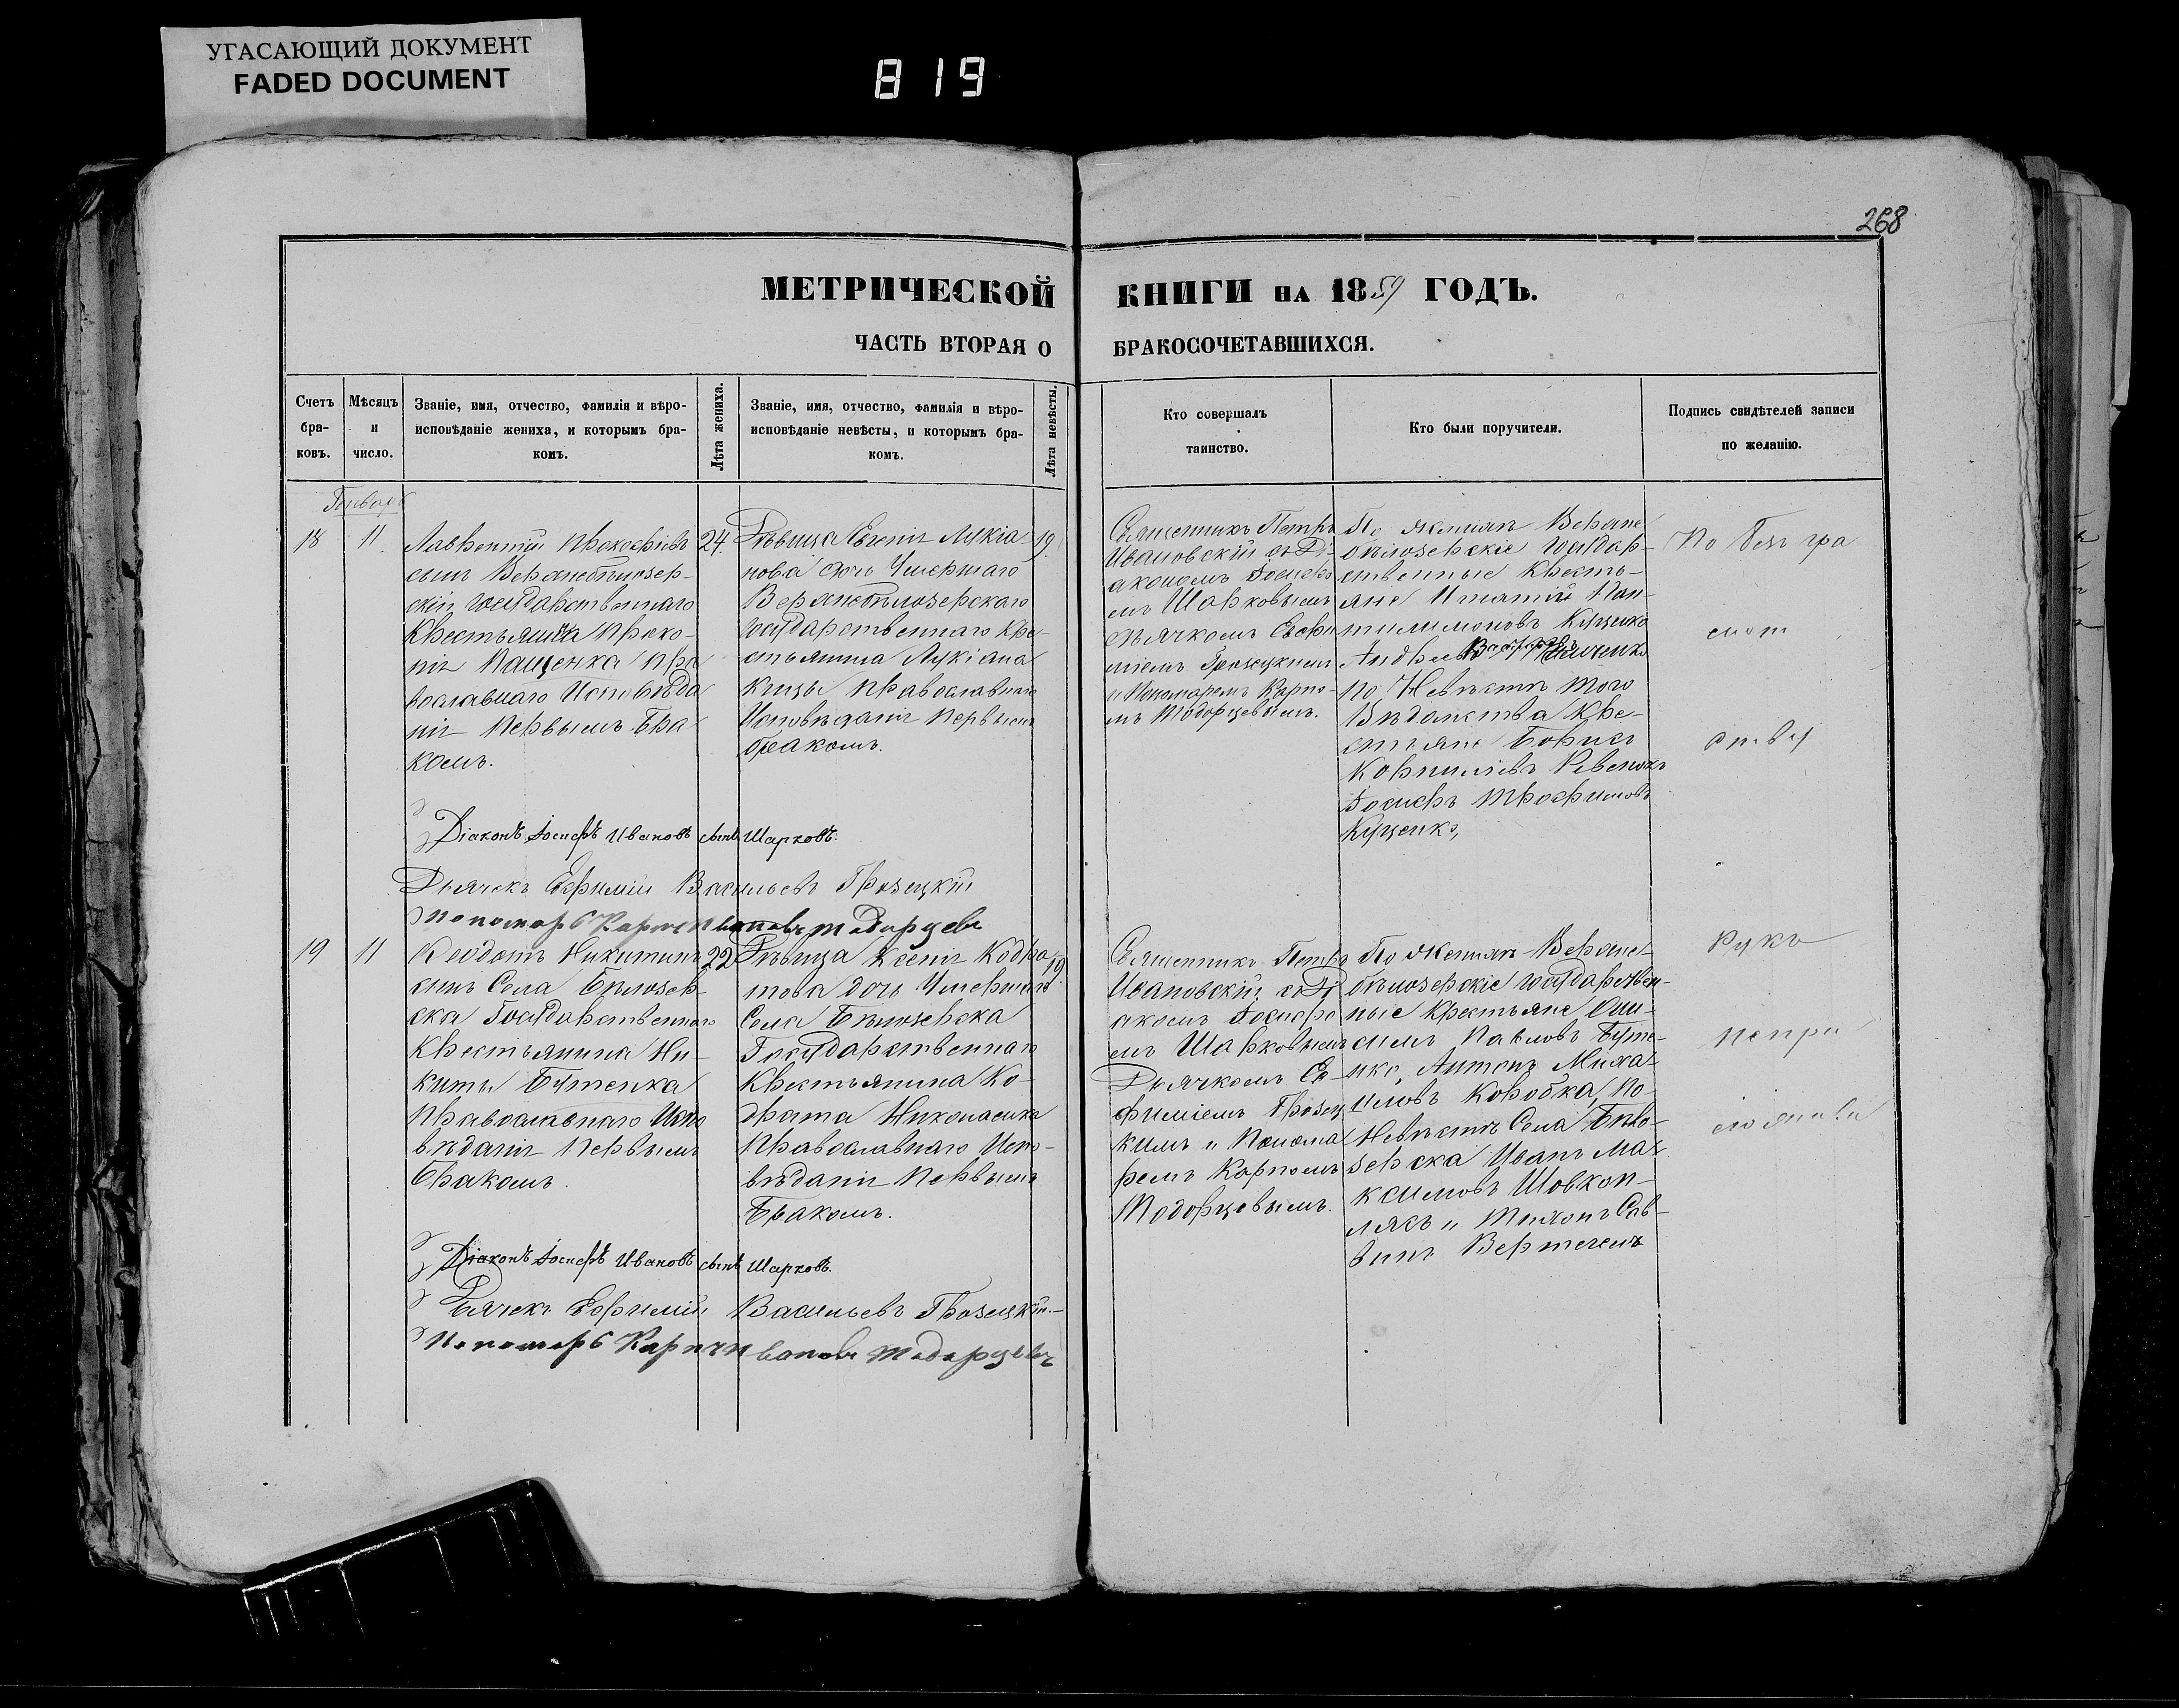 УГАСАЮЩИЙ ДОКУМЕНТ
FADED DOCUMENT
819
268
МЕТРИЧЕСКОЙ КНИГИ НА 1859 ГОДЪ.
ЧАСТЬ ВТОРАЯ О БРАКОСОЧЕТАВШИХСЯ.
Счетъ
бра-
ковъ.
Мѣсяцъ
и
число.
Званіе, имя, отчество, фамилія и вѣро-
исповѣданіе жениха, и которымъ бра-
комъ.
Лѣта жениха.
Званіе, имя, отчество, фамилія и вѣро-
исповѣданіе невѣсты, и которымъ бра-
комъ.
Лѣта невѣсты.
Кто совершалъ
таинство.
Кто были поручители.
Подпись свидѣтелей записи
по желанію.
Генварь
18
11
Лаврентій Прокофіевъ
сынъ
государственнаго
Крестьянина Проко-
пія Пащенка Пра
вославнаго Исповѣда
нія Первымъ Бра
комъ.
24.
Дѣвица Евгенія Лукіа
нова дочь Умершаго
Государственнаго Кре-
стьянина Лукіана
Куцы Православнаго
Исповѣданія Первымъ
бракомъ.
19.
Священникъ Петръ
Ивановскій съ Ді-
акономъ Іосифо
мъ Шарковымъ
дьячкомъ Евфи
міемъ Грозецкимъ
и Пономаремъ Карпо-
мъ Тодорцевымъ.
По женихѣ
государ-
ственные Кресть-
яне Игнатій Пан-
тилимоновъ Куценко
Андрей
по Невѣстѣ того
Вѣдомства Кре-
стьяне Борисъ
Корниліевъ
Іосифъ Трофимовъ
Куценко,
По безъ гра
мот
Діаконъ Іосифъ Ивановъ сынъ Шарковъ.
Дьячекъ Евфимій Васильевъ Грозецкій
Пономарь Карпъ Ивановъ Тодорцевъ
19
11
Феодотъ Никитинъ
сынъ Села Бѣлозер-
ска Государственнаго
Крестьянина Ни-
киты Бутенка
Православнаго Испо
вѣданія Первымъ
Бракомъ.
22
Дѣвица Ксенія Кодра
това дочь Умершаго
Села Бѣлозерска
Государственнаго
Крестьянина Ко-
драта Николаенка
Православнаго Испо-
вѣданія Первымъ
Бракомъ.
19
Священникъ Петръ
Ивановскій съ Ді
акономъ Іосифо
мъ Шарковымъ
Дьячкомъ Ев-
фиміемъ Грозец
кимъ и Понома
ремъ Карпомъ
Тодорцевымъ.
По женихѣ
государствен-
ные Крестьяне Они-
симъ Павловъ Буте-
нко, Антонъ Миха-
иловъ Коробка, по
Невѣстѣ Села Бѣло-
зерска Иванъ Мак
симовъ Шовкоп-
лясъ и Тихонъ Сав-
винъ
Рукъ
Діаконъ Іосифъ Ивановъ сынъ Шарковъ.
Дьячекъ Евфимій Васильевъ Грозецкій.
Пономарь Карпъ Ивановъ Тодорцевъ